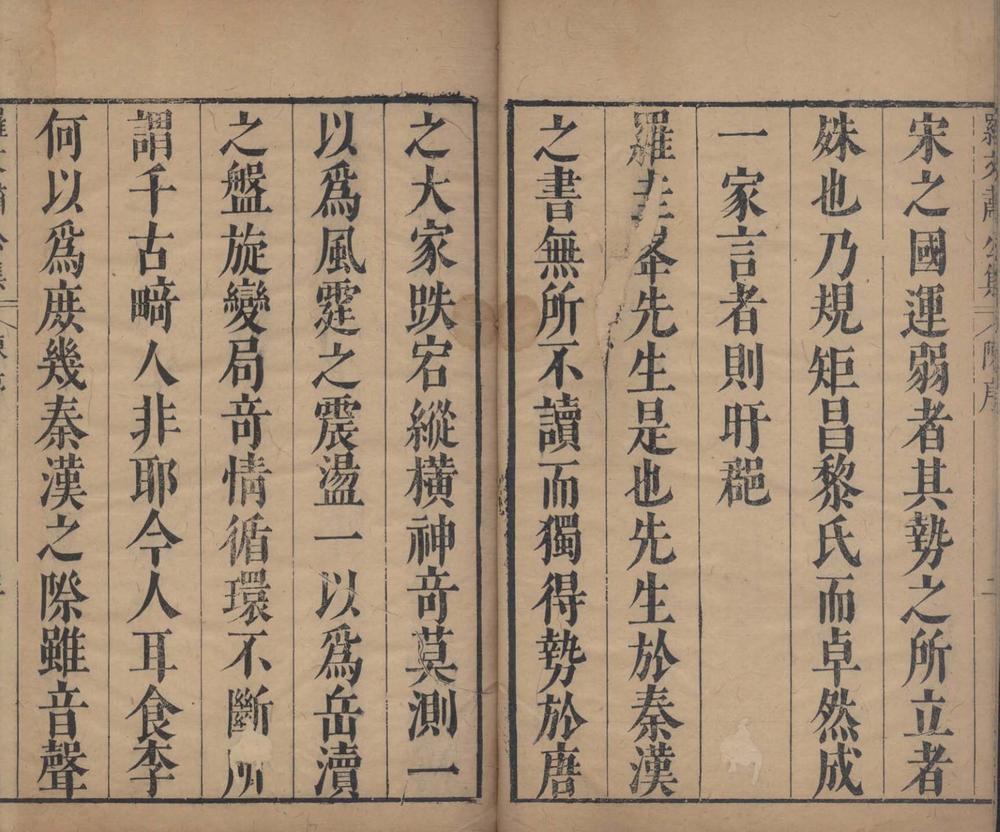 宋之國運弱者其勢之所立者
姝也乃規矩昌黎氏而卓然成
一家言者則旴郡
羅圭峯先生是也先生於秦漢
之書無所不讀而獨得勢於唐
之大家跌宕縱橫神奇莫測一
以爲風霆之震盪一以爲岳瀆
之盤旋變局奇情循環不斷所
謂千古畸人非耶今人耳食李
何以爲庶幾秦漢之際雖音聲